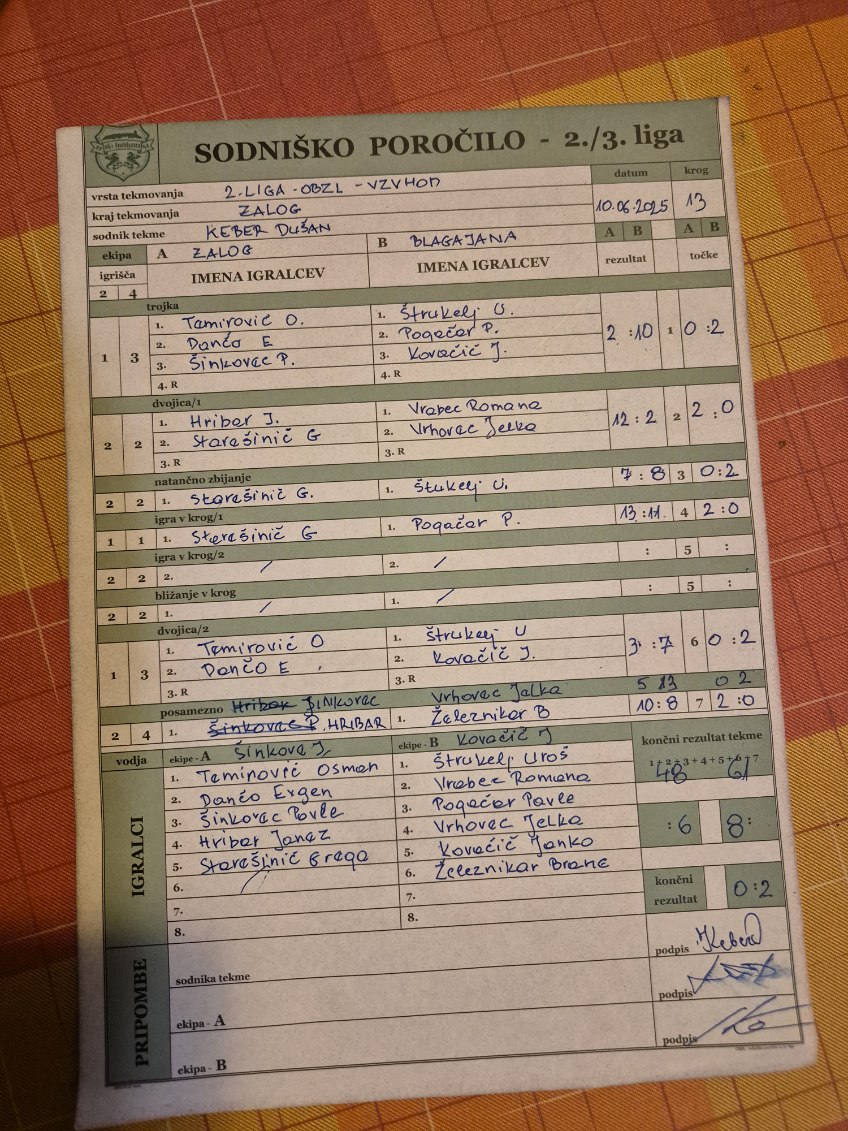 SODNIŠKO POROČILO - 2./3. liga
vrsta tekmovanja 2. LIGA - OBZL - VZVHOD datum krog
kraj tekmovanja ZALOG 10.06.2025 13
sodnik tekme KEBER DUŠAN
ekipa A ZALOG B BLAGAJANA A B A B
igrišča IMENA IGRALCEV IMENA IGRALCEV rezultat točke
2 4
trojka
1. Tamirović O. 1. Štrukelj U.
1 3 2. Dančo E 2. Pogačar P. 2 :10 1 0 :2
3. Šinkovec P. 3. Kovačič J.
4. R 4. R
dvojica/1
1. Hribar J. 1. Vrabec Romana
2 2 2. Starešinič G 2. Vrhovec Jelka 12 : 2 2 2 : 0
3. R 3. R
natančno zbijanje
2 2 1. Starešinič G. 1. Štukelj U. 7 : 8 3 0:2
igra v krog/1
1 1 1. Starešinič G 1. Pogačar P. 13 :11. 4 2:0
igra v krog/2
2 2 2. / 2. / : 5 :
bližanje v krog
2 2 1. / 1. / : 5 :
dvojica/2
1. Tamirović O 1. Štrukelj U
1 3 2. Dančo E 2. Kovačič J. 3 :7 6 0 :2
3. R 3. R
posamezno Hribar ŠINKOVEC Vrhovec Jalka 5 13 0 2
2 4 1. Šinkovec P. HRIBAR 1. Železnikar B 10:8 7 2:0
vodja ekipe - A Šinkove J. ekipe - B Kovačič J končni rezultat tekme
1 + 2 + 3 + 4 + 5 + 6 + 7
48 61
IGRALCI
1. Taminović Osman 1. Štrukelj Uroš
2. Dančo Ergen 2. Vrabec Romana
3. Šinkovec Pavle 3. Pogačar Pavle
4. Hribar Janez 4. Vrhovec Jelka : 6 8 :
5. Starešinič Grega 5. Kovačič Janko
6. 6. Železnikar Brane
7. 7. končni rezultat 0:2
8. 8.
PRIPOMBE
sodnika tekme podpis Keber
ekipa - A podpis
ekipa - B podpis